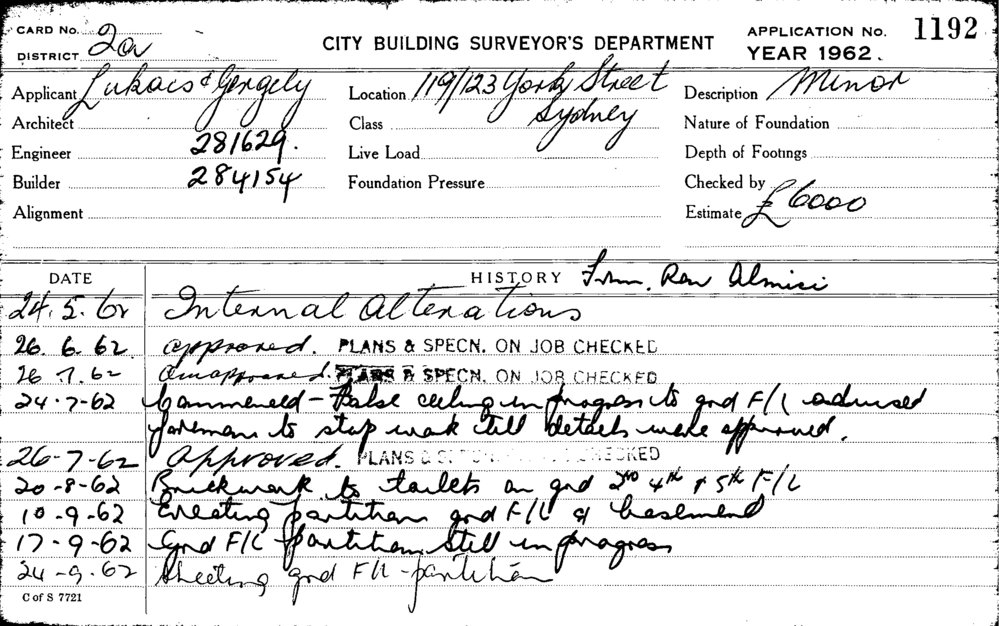 CARD No. 2a
DISTRICT
CITY BUILDING SURVEYOR'S DEPARTMENT
APPLICATION No. 1192
YEAR 1962.
Applicant Lukacs & Gergely
Location 119/123 York Street
Sydney
Description Minor
Architect
Class
Nature of Foundation
Engineer 281629.
Live Load
Depth of Footings
Builder 284154
Foundation Pressure
Checked by
Alignment
Estimate £6000
DATE HISTORY Ron
24.5.62 Internal Alterations
26.6.62 approved. PLANS & SPECN. ON JOB CHECKED
26.7.62 PLANS & SPECN. ON JOB CHECKED
24-7-62 Commenced - False ceiling in progress to gnd F/L advised
foreman to stop work till details were approved.
26-7-62 Approved. PLANS & CHECKED
20-8-62 Brickwork to toilets on gnd 2nd 4th & 5th F/L
10-9-62 Erecting partition gnd F/L & basement
17-9-62 Gnd F/L Partition still in progress
24-9-62 Sheeting gnd F/L - partition
C of S 7721